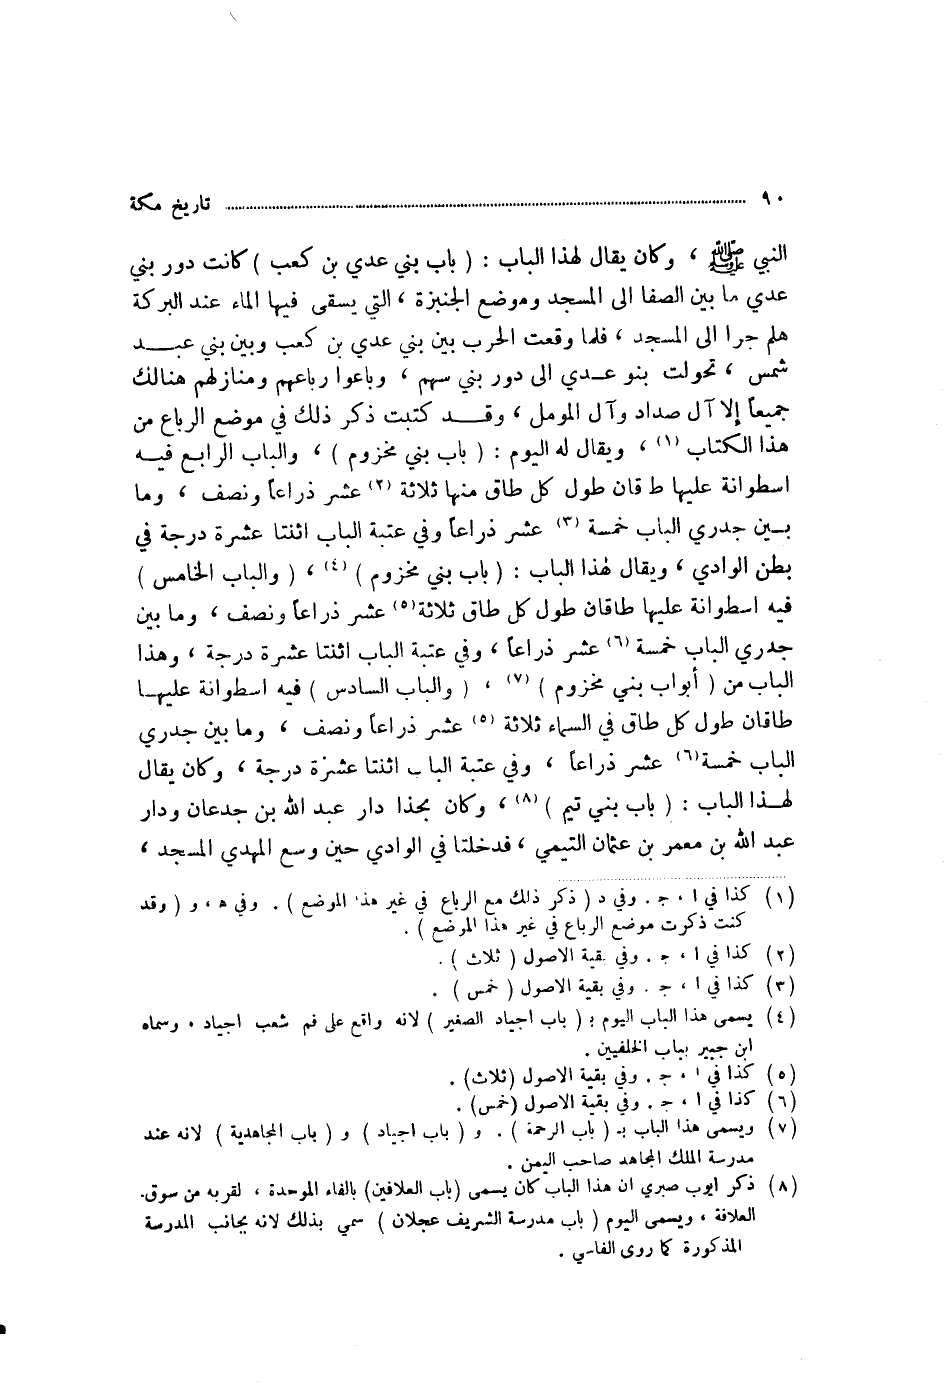 ٩٠ ........ تاريخ مكة
النبي ﷺ ، وكان يقال لهذا الباب : ( باب بني عدي بن كعب ) كانت دور بني
عدي ما بين الصفا الى المسجد وموضع الجنبزة ، التي يسقى فيها الماء عند البركة
هلم جرا الى المسجد ، فلما وقعت الحرب بين بني عدي بن كعب وبين بني عبد
شمس ، تحولت بنو عدي الى دور بني سهم ، وباعوا رباعهم ومنازلهم هنالك
جميعاً إلا آل صداد وآل المومل ، وقد كتبت ذكر ذلك في موضع الرباع من
هذا الكتاب (١) ، ويقال له اليوم : ( باب بني مخزوم ) ، والباب الرابع فيه
اسطوانة عليها طاقان طول كل طاق منها ثلاثة (٢) عشر ذراعاً ونصف ، وما
بين جدري الباب خمسة (٣) عشر ذراعاً وفي عتبة الباب اثنتا عشرة درجة في
بطن الوادي ، ويقال لهذا الباب : ( باب بني مخزوم ) (٤) ، ( والباب الخامس )
فيه اسطوانة عليها طاقان طول كل طاق ثلاثة(٥) عشر ذراعاً ونصف ، وما بين
جدري الباب خمسة (٦) عشر ذراعاً ، وفي عتبة الباب اثنتا عشرة درجة ، وهذا
الباب من ( أبواب بني مخزوم ) (٧) ، ( والباب السادس ) فيه اسطوانة عليها
طاقان طول كل طاق في السماء ثلاثة (٥) عشر ذراعاً ونصف ، وما بين جدري
الباب خمسة(٦) عشر ذراعاً ، وفي عتبة الباب اثنتا عشرة درجة ، وكان يقال
لهذا الباب : ( باب بني تيم ) (٨) ، وكان بحذا دار عبد الله بن جدعان ودار
عبد الله بن معمر بن عثمان التيمي ، فدخلتا في الوادي حين وسع المهدي المسجد ،
(١) كذا في ا ، ج . وفي د ( ذكر ذلك مع الرباع في غير هذا الموضع ) . وفي ه ، و ( وقد
كنت ذكرت موضع الرباع في غير هذا الموضع ) .
(٢) كذا في ا ، ج . وفي بقية الاصول ( ثلاث ) .
(٣) كذا في ا ، ج . وفي بقية الاصول ( خمس ) .
(٤) يسمى هذا الباب اليوم بـ ( باب اجياد الصغير ) لانه واقع على فم شعب اجياد ، وسماه
ابن جبير بباب الخلفيين .
(٥) كذا في ا ، ج . وفي بقية الاصول (ثلاث) .
(٦) كذا في ا ، ج . وفي بقية الاصول (خمس) .
(٧) ويسمى هذا الباب بـ ( باب الرحمة ) . و ( باب اجياد ) و ( باب المجاهدية ) لانه عند
مدرسة الملك المجاهد صاحب اليمن .
(٨) ذكر ايوب صبري ان هذا الباب كان يسمى (باب العلافين) بالفاء الموحدة ، لقربه من سوق
العلافة ، ويسمى اليوم ( باب مدرسة الشريف عجلان ) سمي بذلك لانه بجانب المدرسة
المذكورة كما روى الفاسي .